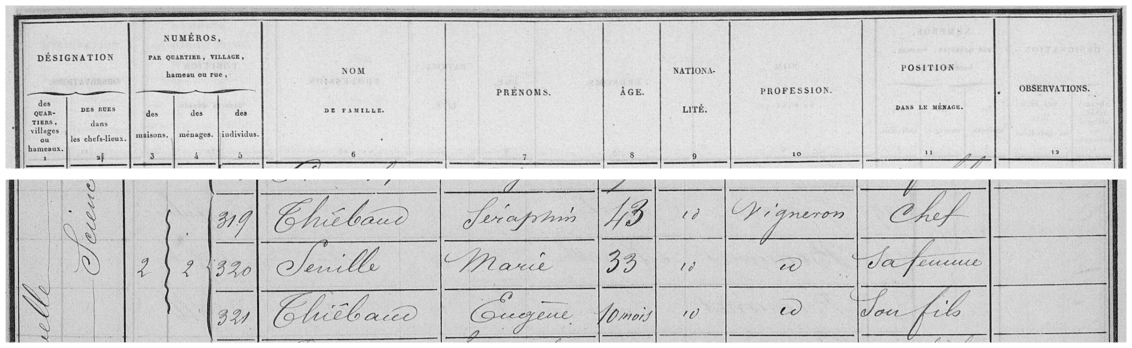 DÉSIGNATION
NUMÉROS,
PAR QUARTIER, VILLAGE,
hameau ou rue,
NOM
DE FAMILLE.
PRÉNOMS.
ÂGE.
NATIONA-
LITÉ.
PROFESSION.
POSITION
DANS LE MÉNAGE.
OBSERVATIONS.
des
QUAR-
TIERS,
villages
ou
hameaux.
DES RUES
dans
les chefs-lieux.
des
maisons.
des
ménages.
des
individus.
1 2 3 4 5 6 7 8 9 10 11 12
319 Thiébaud Séraphin 43 id Vigneron Chef
2 2 320 Seville Marie 33 id id Sa femme
321 Thiébaud Eugène 10 mois id id Son fils